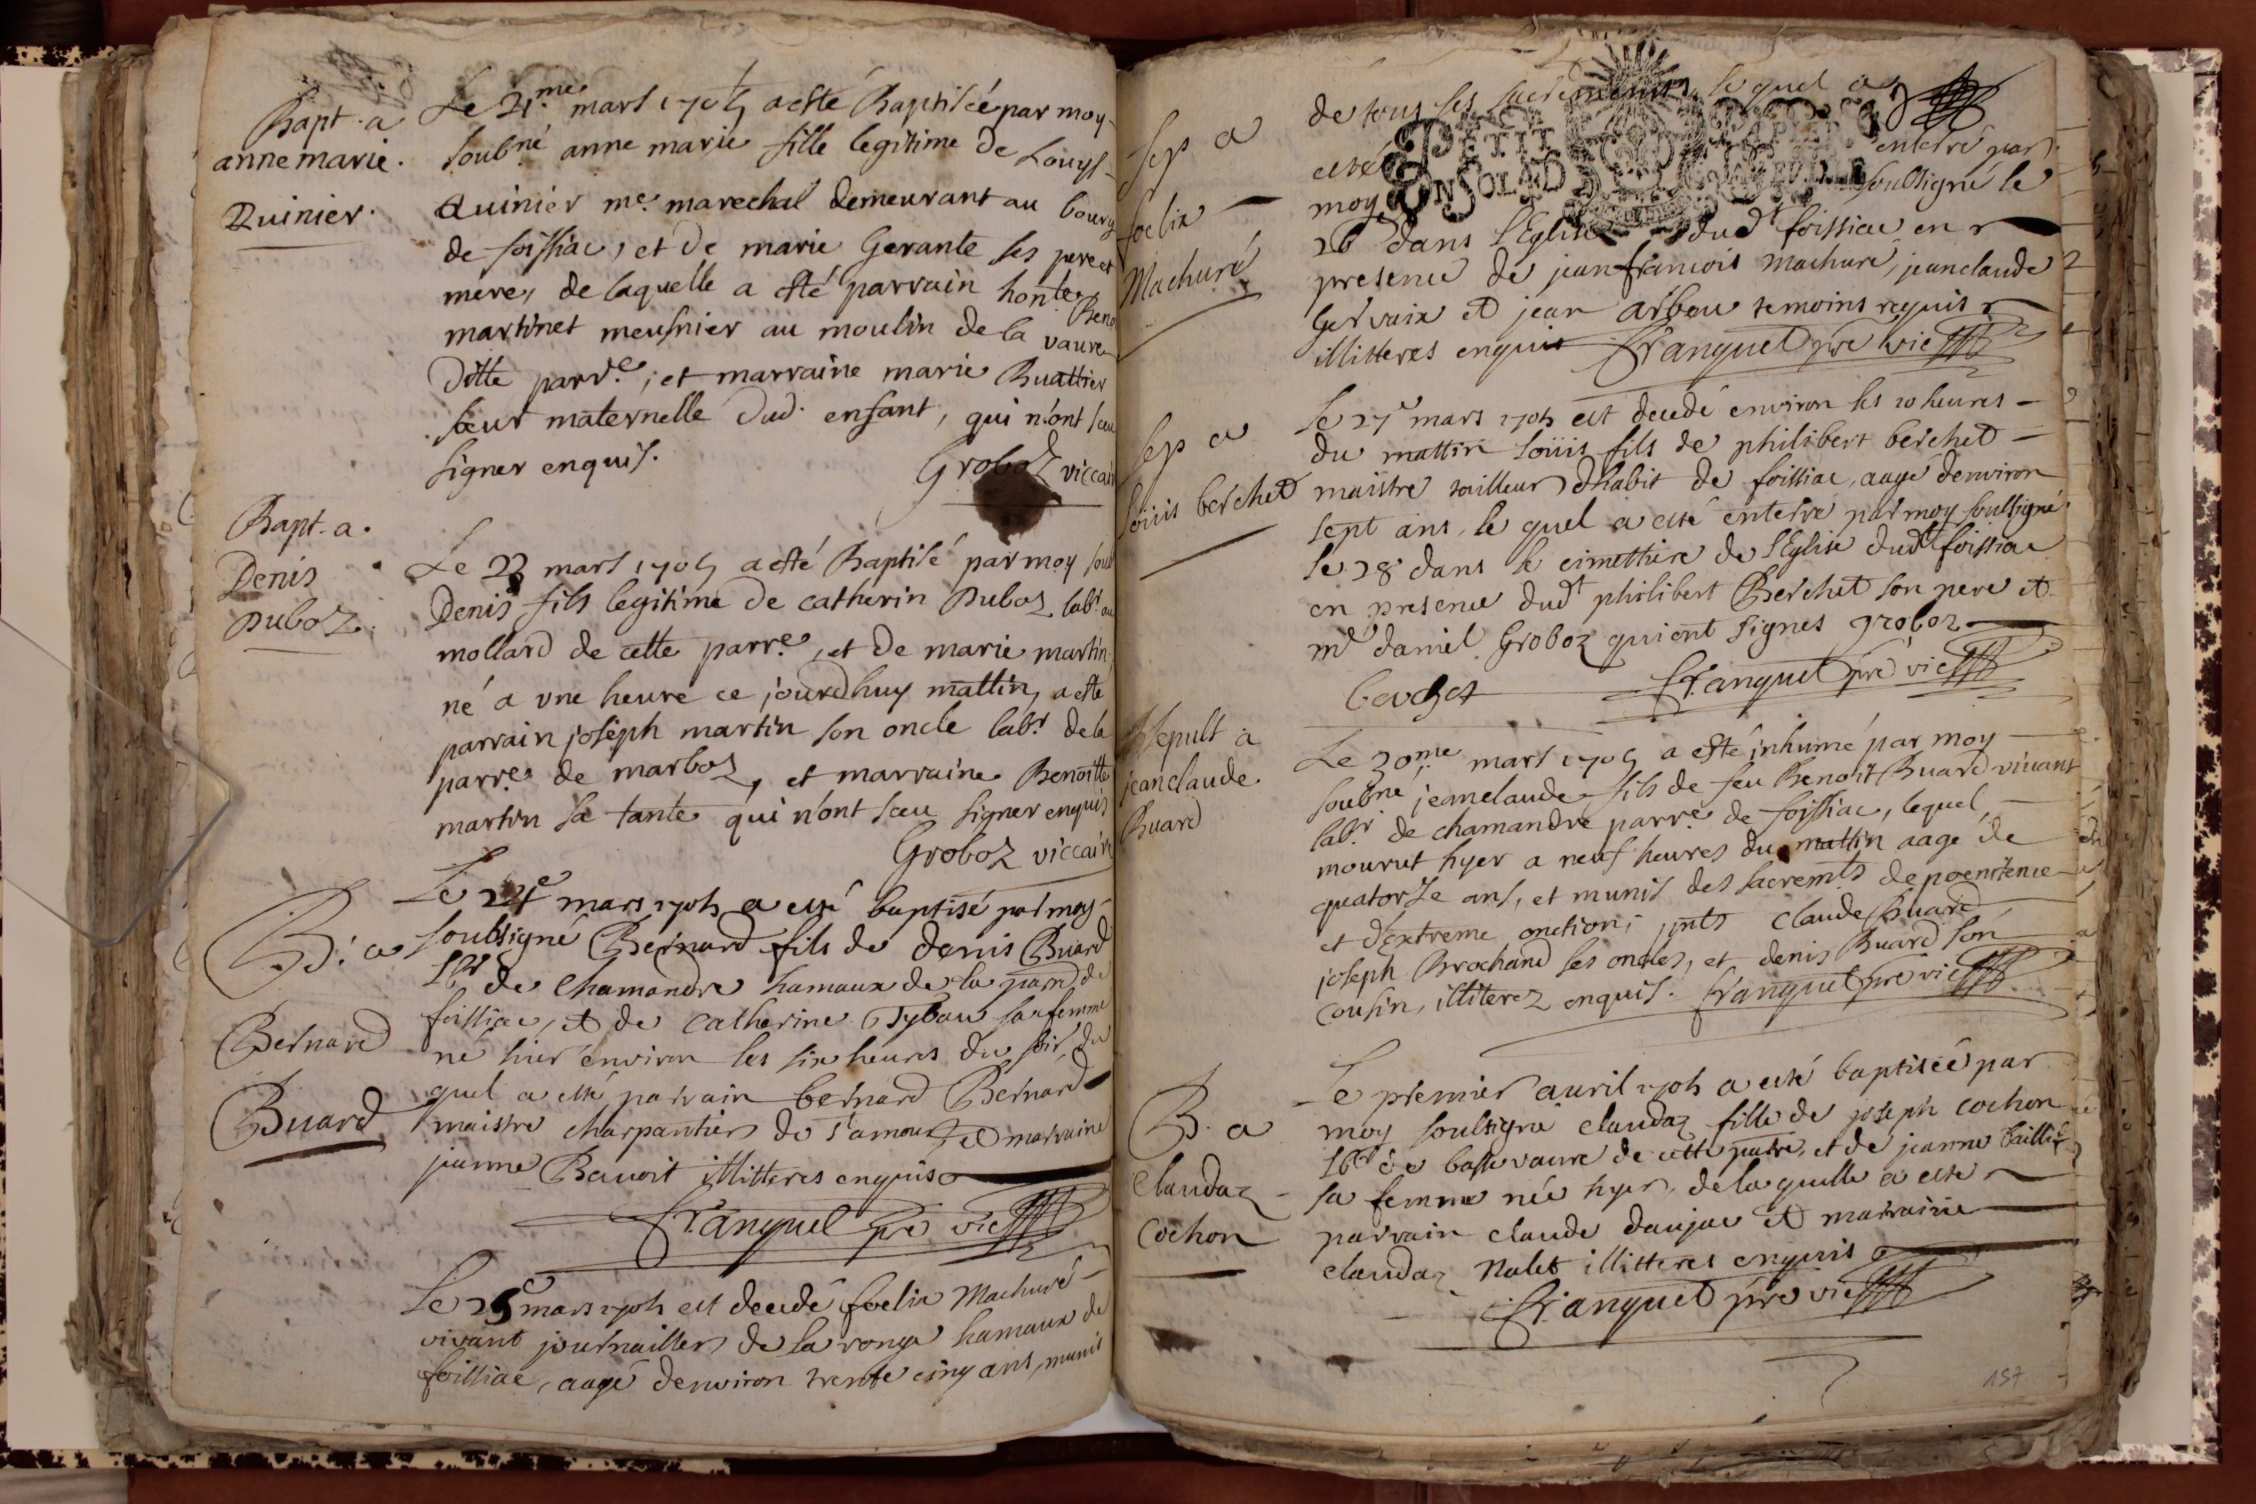 Bapt. a
anne marie.
Quinier.
Le 21.me mars 1705 a esté Baptisée par moy
soubné anne marie fille legitime de Louys
Quinier me. marechal demeurant au bourg
de foissiac, et de marie Gerante ses pere et
mere, de laquelle a esté parrain honte.
Beno
martinet meusnier au moulin de la vaure
ditte parr.e, et marraine marie Buattier
soeur maternelle dud. enfant, qui n'ont sceu
signer enquis.
Groboz viccair
Bapt. a.
Denis
Duboz.
Le 23 mars 1705 a esté Baptisé par moy soub
Denis fils legitime de catherin Duboz labr. au
mollard de cette parr.e, et de marie martin
né a une heure ce jourdhuy mattin, a esté
parrain joseph martin son oncle labr. de la
parr.e de marboz, et marraine Benoitte
martin sa tante qui n'ont sceu signer enquis
Groboz viccaire
B. a
Bernard
Buard
Le 24e mars 1705 a esté baptisé par moy
soubsigné Bernard fils de denis Buard
lbr de Chamandre hamaux de la parr. de
foissiac, et de Catherine Tybau sa femme
né hier environ les six heures du soir, du
quel a esté parrain bernard Bernard
maistre charpantier de st amour, et marraine
jeanne Benoit illitteres enquis
franquet pre vic
Le 25e mars 1705 est decedé foelix Machuré
vivant journaillier de la ronge hamaux de
foissiac, aagé denviron trente cinq ans, munis
Sep a
foelix
Machuré
de tous ses sacremens, le quel a
esté enterré par
PETIT
EN SOLAD
moy soussigné le
26 dans l'Eglise dudt foissiac en
presence de jean francois machuré, jean claude
Gervaix et jean arbou temoins requis
illitteres enquis franquet pre vic
Sep a
Loüis berchet
Le 27e mars 1705 est decedé environ les 10 heures
du mattin Loüis fils de philibert berchet
maistre tailleur dhabit de foissiac, aagé denviron
sept ans, le quel a esté enterré par moy soussigné
le 28 dans le cimettiere de l'Eglise dudt foissiac
en presence dudt philibert Berchet son pere et
me daniel Groboz qui ont signes groboz
berchet franquet pre vic
Sepult a
jean claude
Buard
Le 30me. mars 1705 a esté inhumé par moy
soubné jeanclaude fils de feu Benoit Buard vivant
labr. de chamandre parr.e de foissiac, lequel
mourut hyer a neuf heures du mattin aagé de
quatorse ans, et munis des sacremts de poenitence
et d'extreme onction, pnts claude Buard
joseph Brochand ses oncles, et denis Buard son
cousin, illiterez enquis. franquet pre vic
B. a
Claudaz
Cochon
Le premier avril 1705 a esté baptisée par
moy soubsigné claudaz fille de joseph cochon
lbr de basse vavre de cette parre, et de jeanne baillif
sa femme née hyer, de la quelle a esté
parrain claude daujac et marraine
claudaz Nalet illitteres enquis
franquet pre vic
157